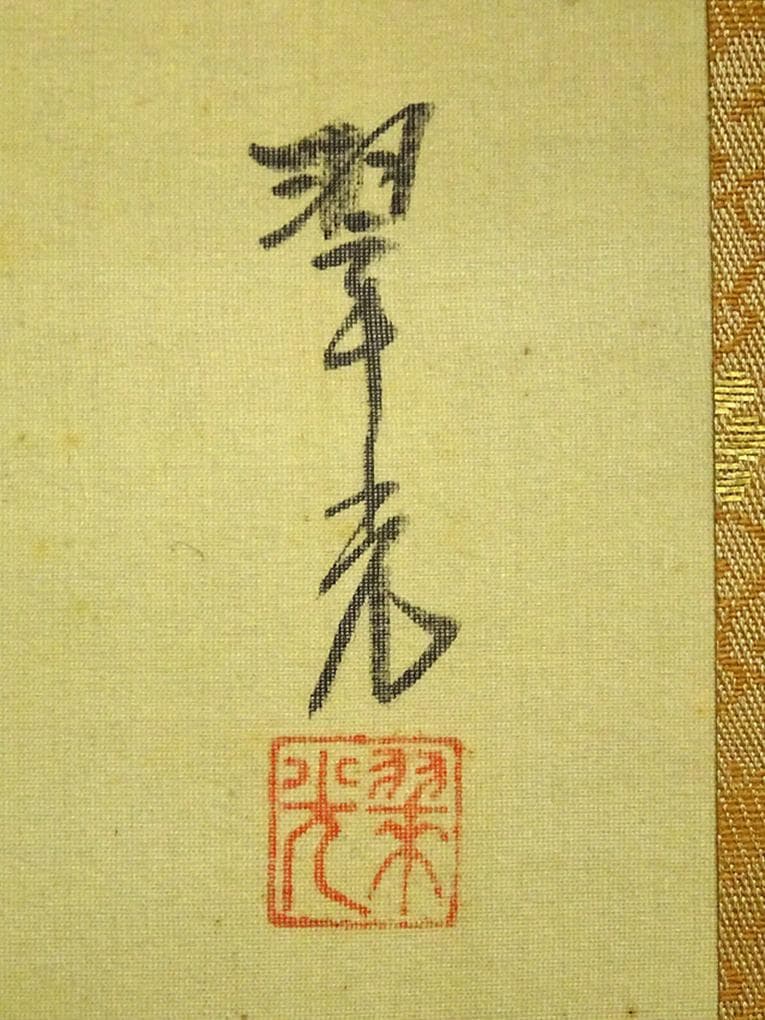 翠光
翠光